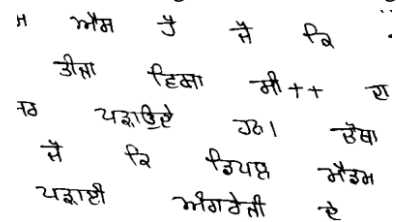 ਐਸ ਹੈ ਜੋ ਕਿ
ਤੀਜਾ ਵਿਸ਼ਾ ਸੀ++ ਦਾ
ਪੜਾਉਂਦੇ ਹਨ। ਚੋਥਾ
ਜੋ ਕਿ ਡਿਪਲ ਮੈਡਮ
ਪੜਾਈ ਅੰਗਰੇਜੀ ਦੇ